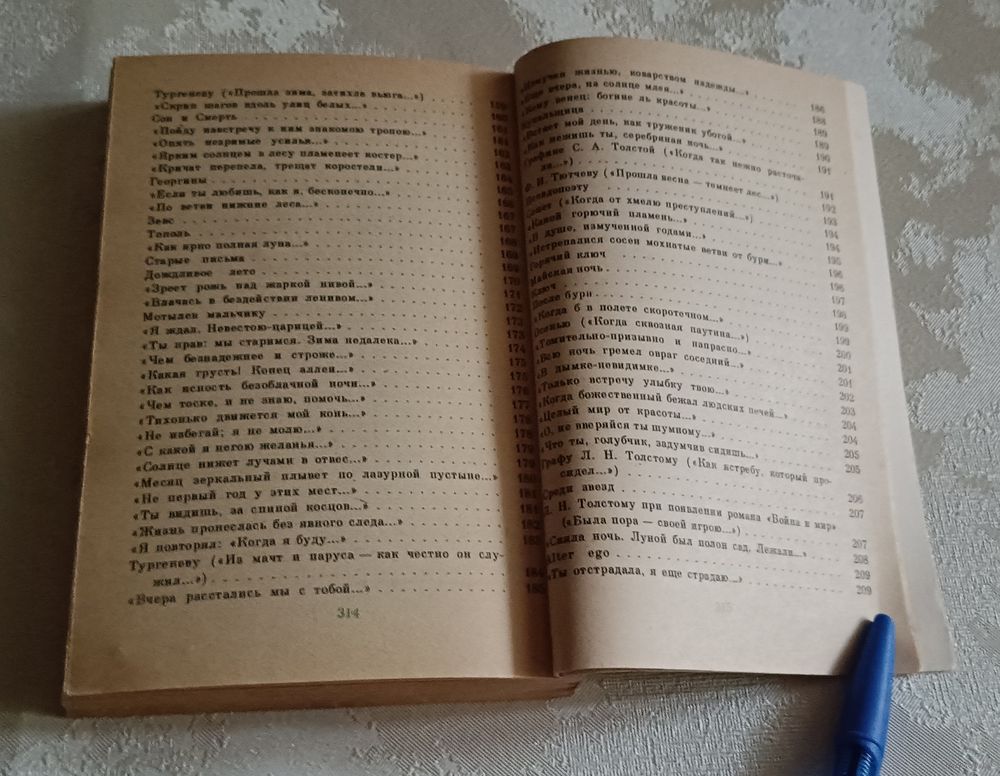 Тургеневу («Прошла зима, затихла вьюга...»)
«Скрип шагов вдоль улиц белых...» 159
Сон и Смерть 160
«Пойду навстречу к ним знакомою тропою...» 161
«Опять незримые усилья...» 161
«Ярким солнцем в лесу пламенеет костер...» 162
«Кричат перепела, трещат коростели...» 163
Георгины 164
«Если ты любишь, как я, бесконечно...» 165
«По ветви нижние леса...» 166
Зевс 167
Тополь 167
«Как ярко полная луна...» 168
Старые письма 169
Дождливое лето 169
«Зреет рожь над жаркой нивой...» 170
«Влачась в бездействии ленивом...» 171
Мотылек мальчику 172
«Я ждал. Невестою-царицей...» 173
«Ты прав: мы старимся. Зима недалека...» 173
«Чем безнадежнее и строже...» 174
«Какая грусть! Конец аллеи...» 175
«Как ясность безоблачной ночи...» 175
«Чем тоске, и не знаю, помочь...» 176
«Тихонько движется мой конь...» 177
«Не избегай; я не молю...» 178
«С какой я негою желанья...» 178
«Солнце нижет лучами в отвес...» 179
«Месяц зеркальный плывет по лазурной пустыне...» 179
«Не первый год у этих мест...» 180
«Ты видишь, за спиной косцов...» 181
«Жизнь пронеслась без явного следа...» 182
«Я повторял: «Когда я буду...» 183
Тургеневу («Из мачт и паруса — как честно он слу-
жил...») 184
«Вчера расстались мы с тобой...» 185
314
«Измучен жизнью, коварством надежды...» 186
«Еще вчера, на солнце млея...» 188
«Кому венец: богине ль красоты...» 189
Купальщица 190
«Встает мой день, как труженик убогой...» 191
«Как нежишь ты, серебряная ночь...»
Графине С. А. Толстой («Когда так нежно расточа-
ла...») 191
Ф. И. Тютчеву («Прошла весна — темнеет лес...») 192
Псевдопоэту 193
Сонет («Когда от хмелю преступлений...») 194
«Какой горючий пламень...» 194
«В душе, измученной годами...» 195
«Истрепалися сосен мохнатые ветви от бури...» 196
Горячий ключ 196
Майская ночь 197
Ключ 198
После бури 199
«Когда б в полете скоротечном...» 199
Осенью («Когда сквозная паутина...») 200
«Томительно-призывно и напрасно...» 201
«Всю ночь гремел овраг соседний...» 201
«В дымке-невидимке...» 202
«Только встречу улыбку твою...» 203
«Когда божественный бежал людских речей...» 204
«Целый мир от красоты...» 204
«О, не вверяйся ты шумному...» 205
«Что ты, голубчик, задумчив сидишь...» 205
Графу Л. Н. Толстому («Как ястребу, который про-
сидел...») 206
Среди звезд 207
Л. Н. Толстому при появлении романа «Война и мир»
(«Была пора — своей игрою...») 207
«Сияла ночь. Луной был полон сад. Лежали...» 208
Alter ego 209
«Ты отстрадала, я еще страдаю...» 209
315